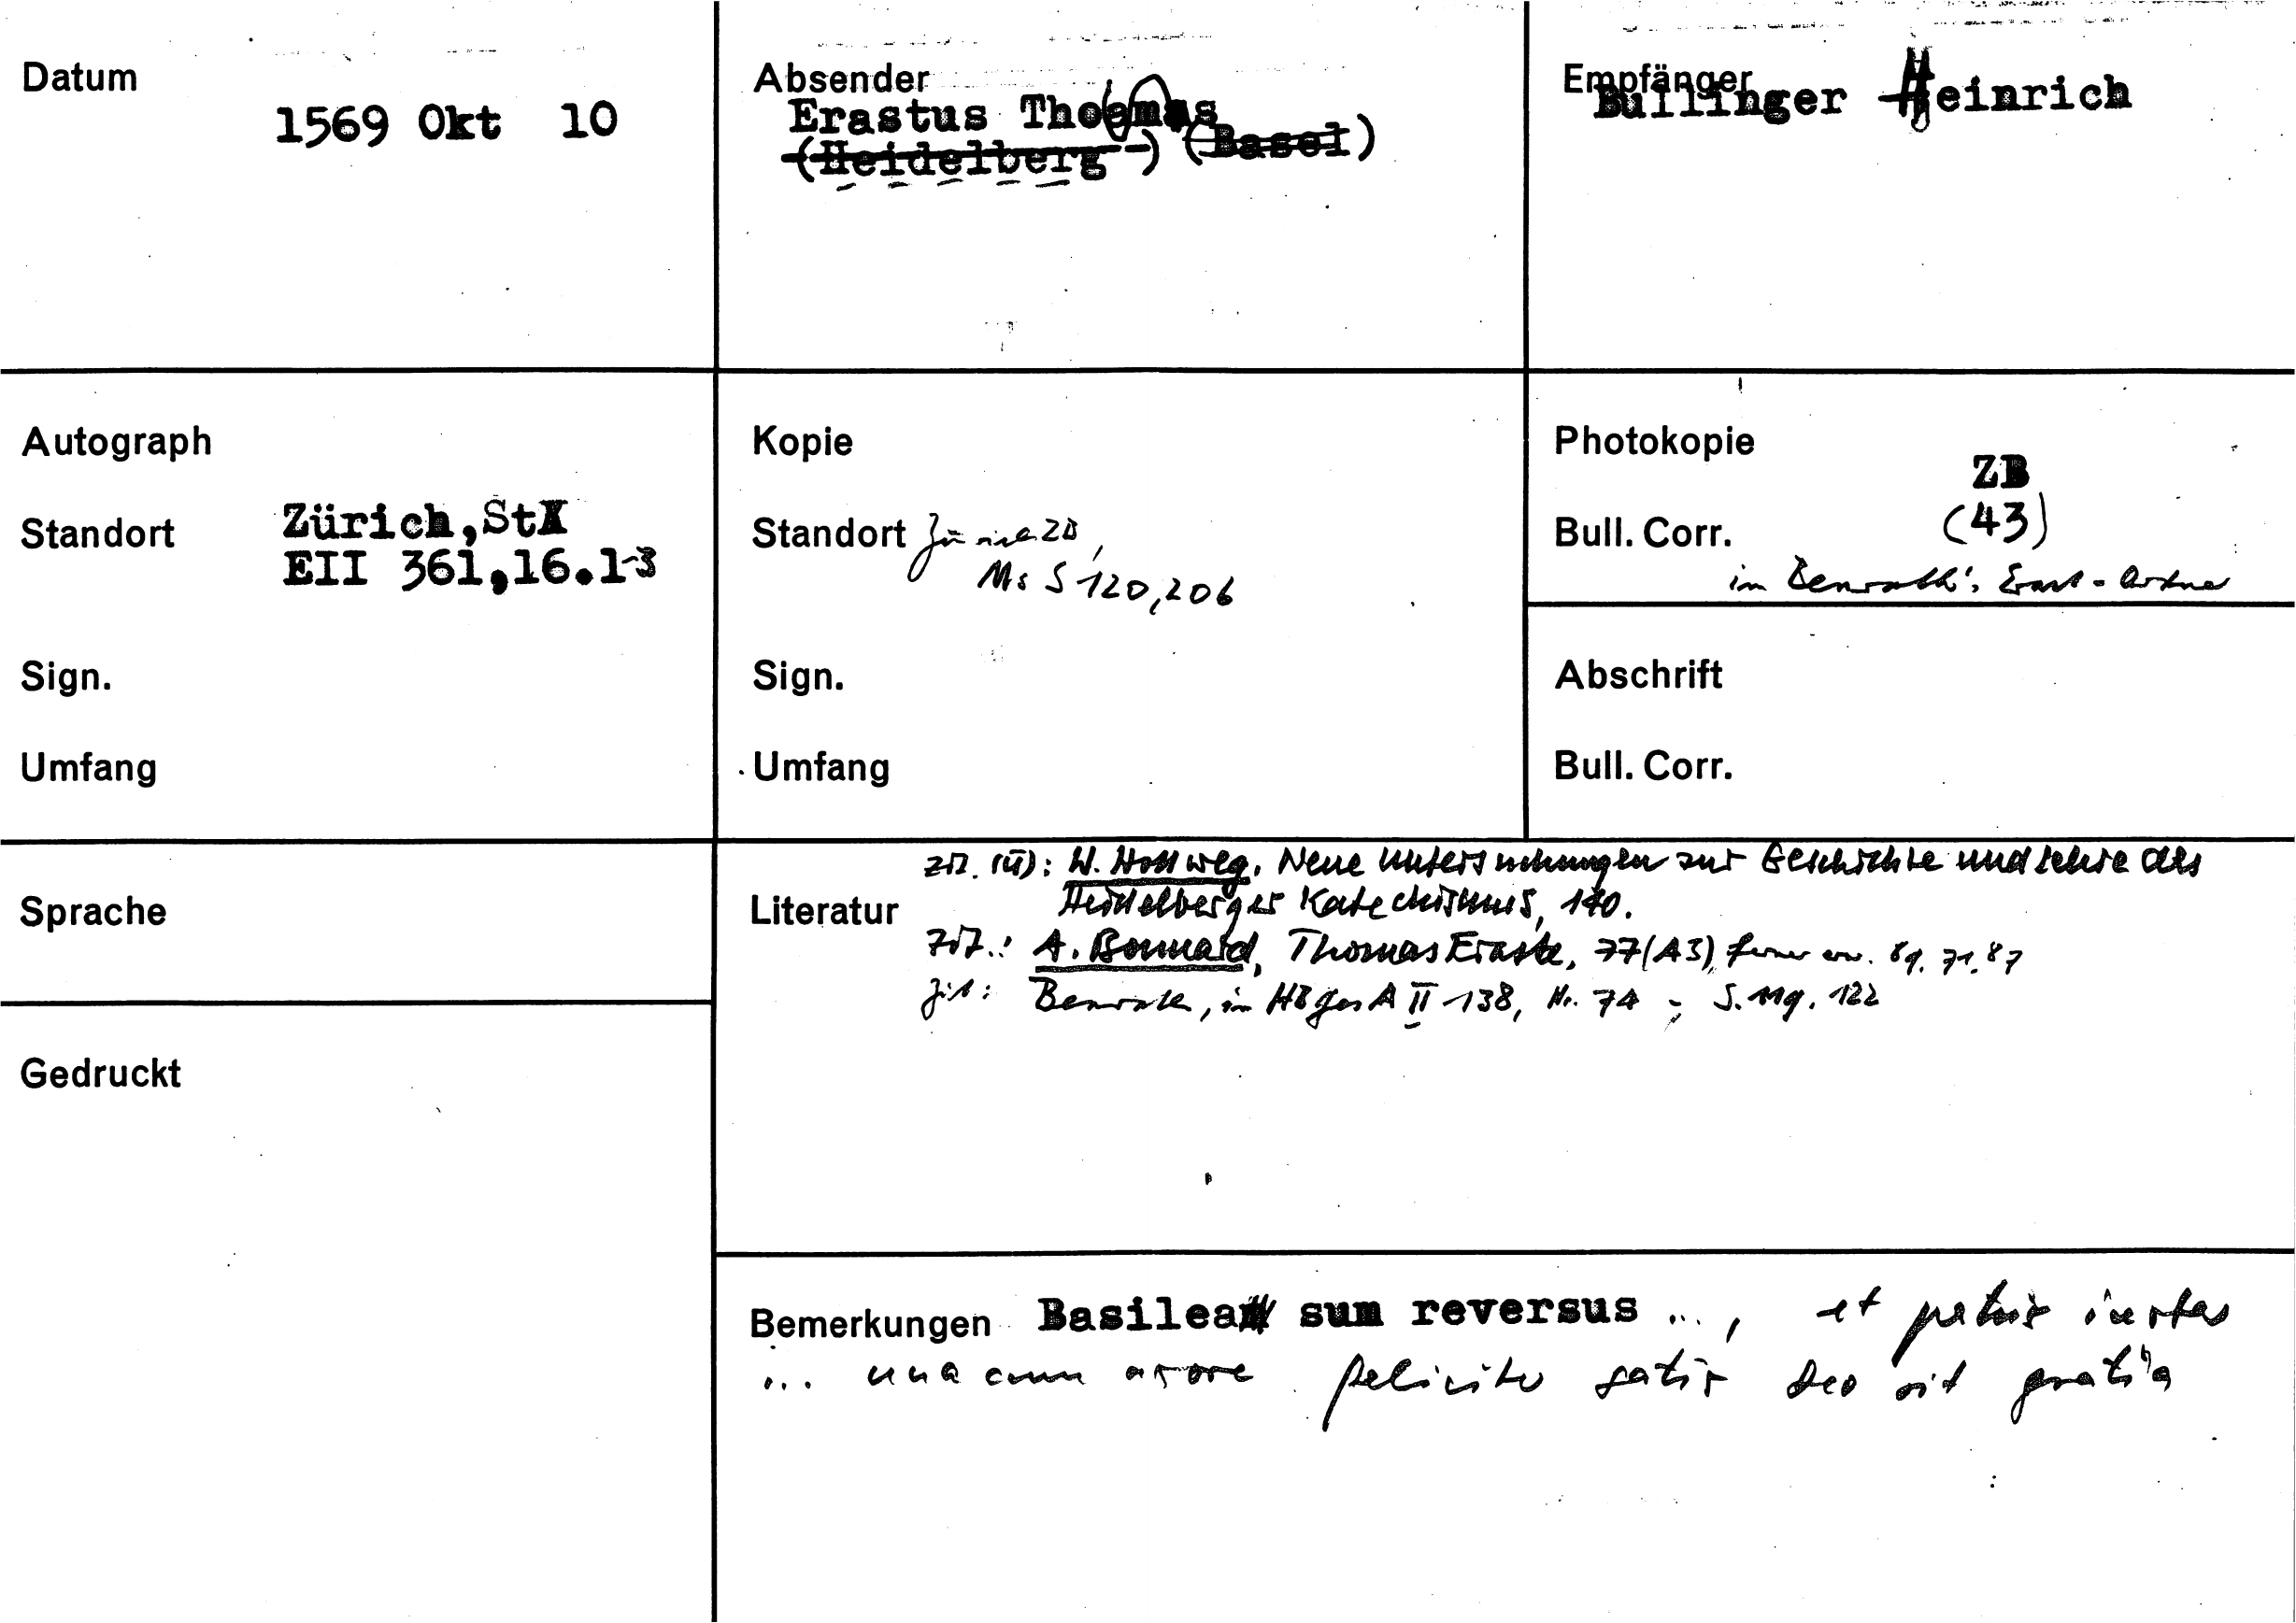 Datum
1569 Okt 10
Absender
Erastus Thomas
(Heidelberg -) (Basel)
Empfänger
Bullinger Heinrich
Autograph
Standort Zürich, StA
EII 361,16.1-3
Sign.
Umfang
Kopie
Standort Zürich ZB,
Ms S 120,206
Sign.
Umfang
Photokopie
ZB
Bull. Corr. (43)
im Benrath's Erast-Ordner
Abschrift
Bull. Corr.
Sprache
Gedruckt
Literatur
zit. (ü): W. Hollweg, Neue Untersuchungen zur Geschichte und Lehre des
Heidelberger Katechismus, 140.
zit.: A. Bonnard, Thomas Eraste, 77 (A3), ferner erw. 69. 71. 87
zit: Benrath, in HBgesA II 138, Nr. 74 ; S. 119. 122
Bemerkungen Basilea sum reversus ..., et
... una cum uxore feliciter satis deo sit gratia